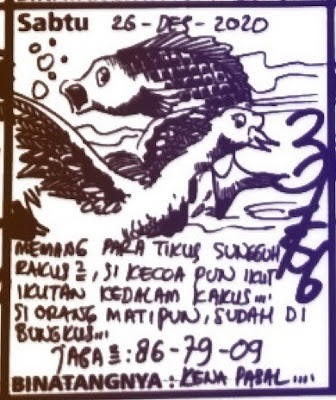 Sabtu 26-DES-2020
MEMANG PARA TIKUS SUNGGUH
RAKUS2, SI KECOA PUN IKUT
IKUTAN KEDALAM KAKUS....
SI ORANG MATIPUN, SUDAH DI
BUNGKUS...
86-79-09
BINATANGNYA : KENA PASAL....